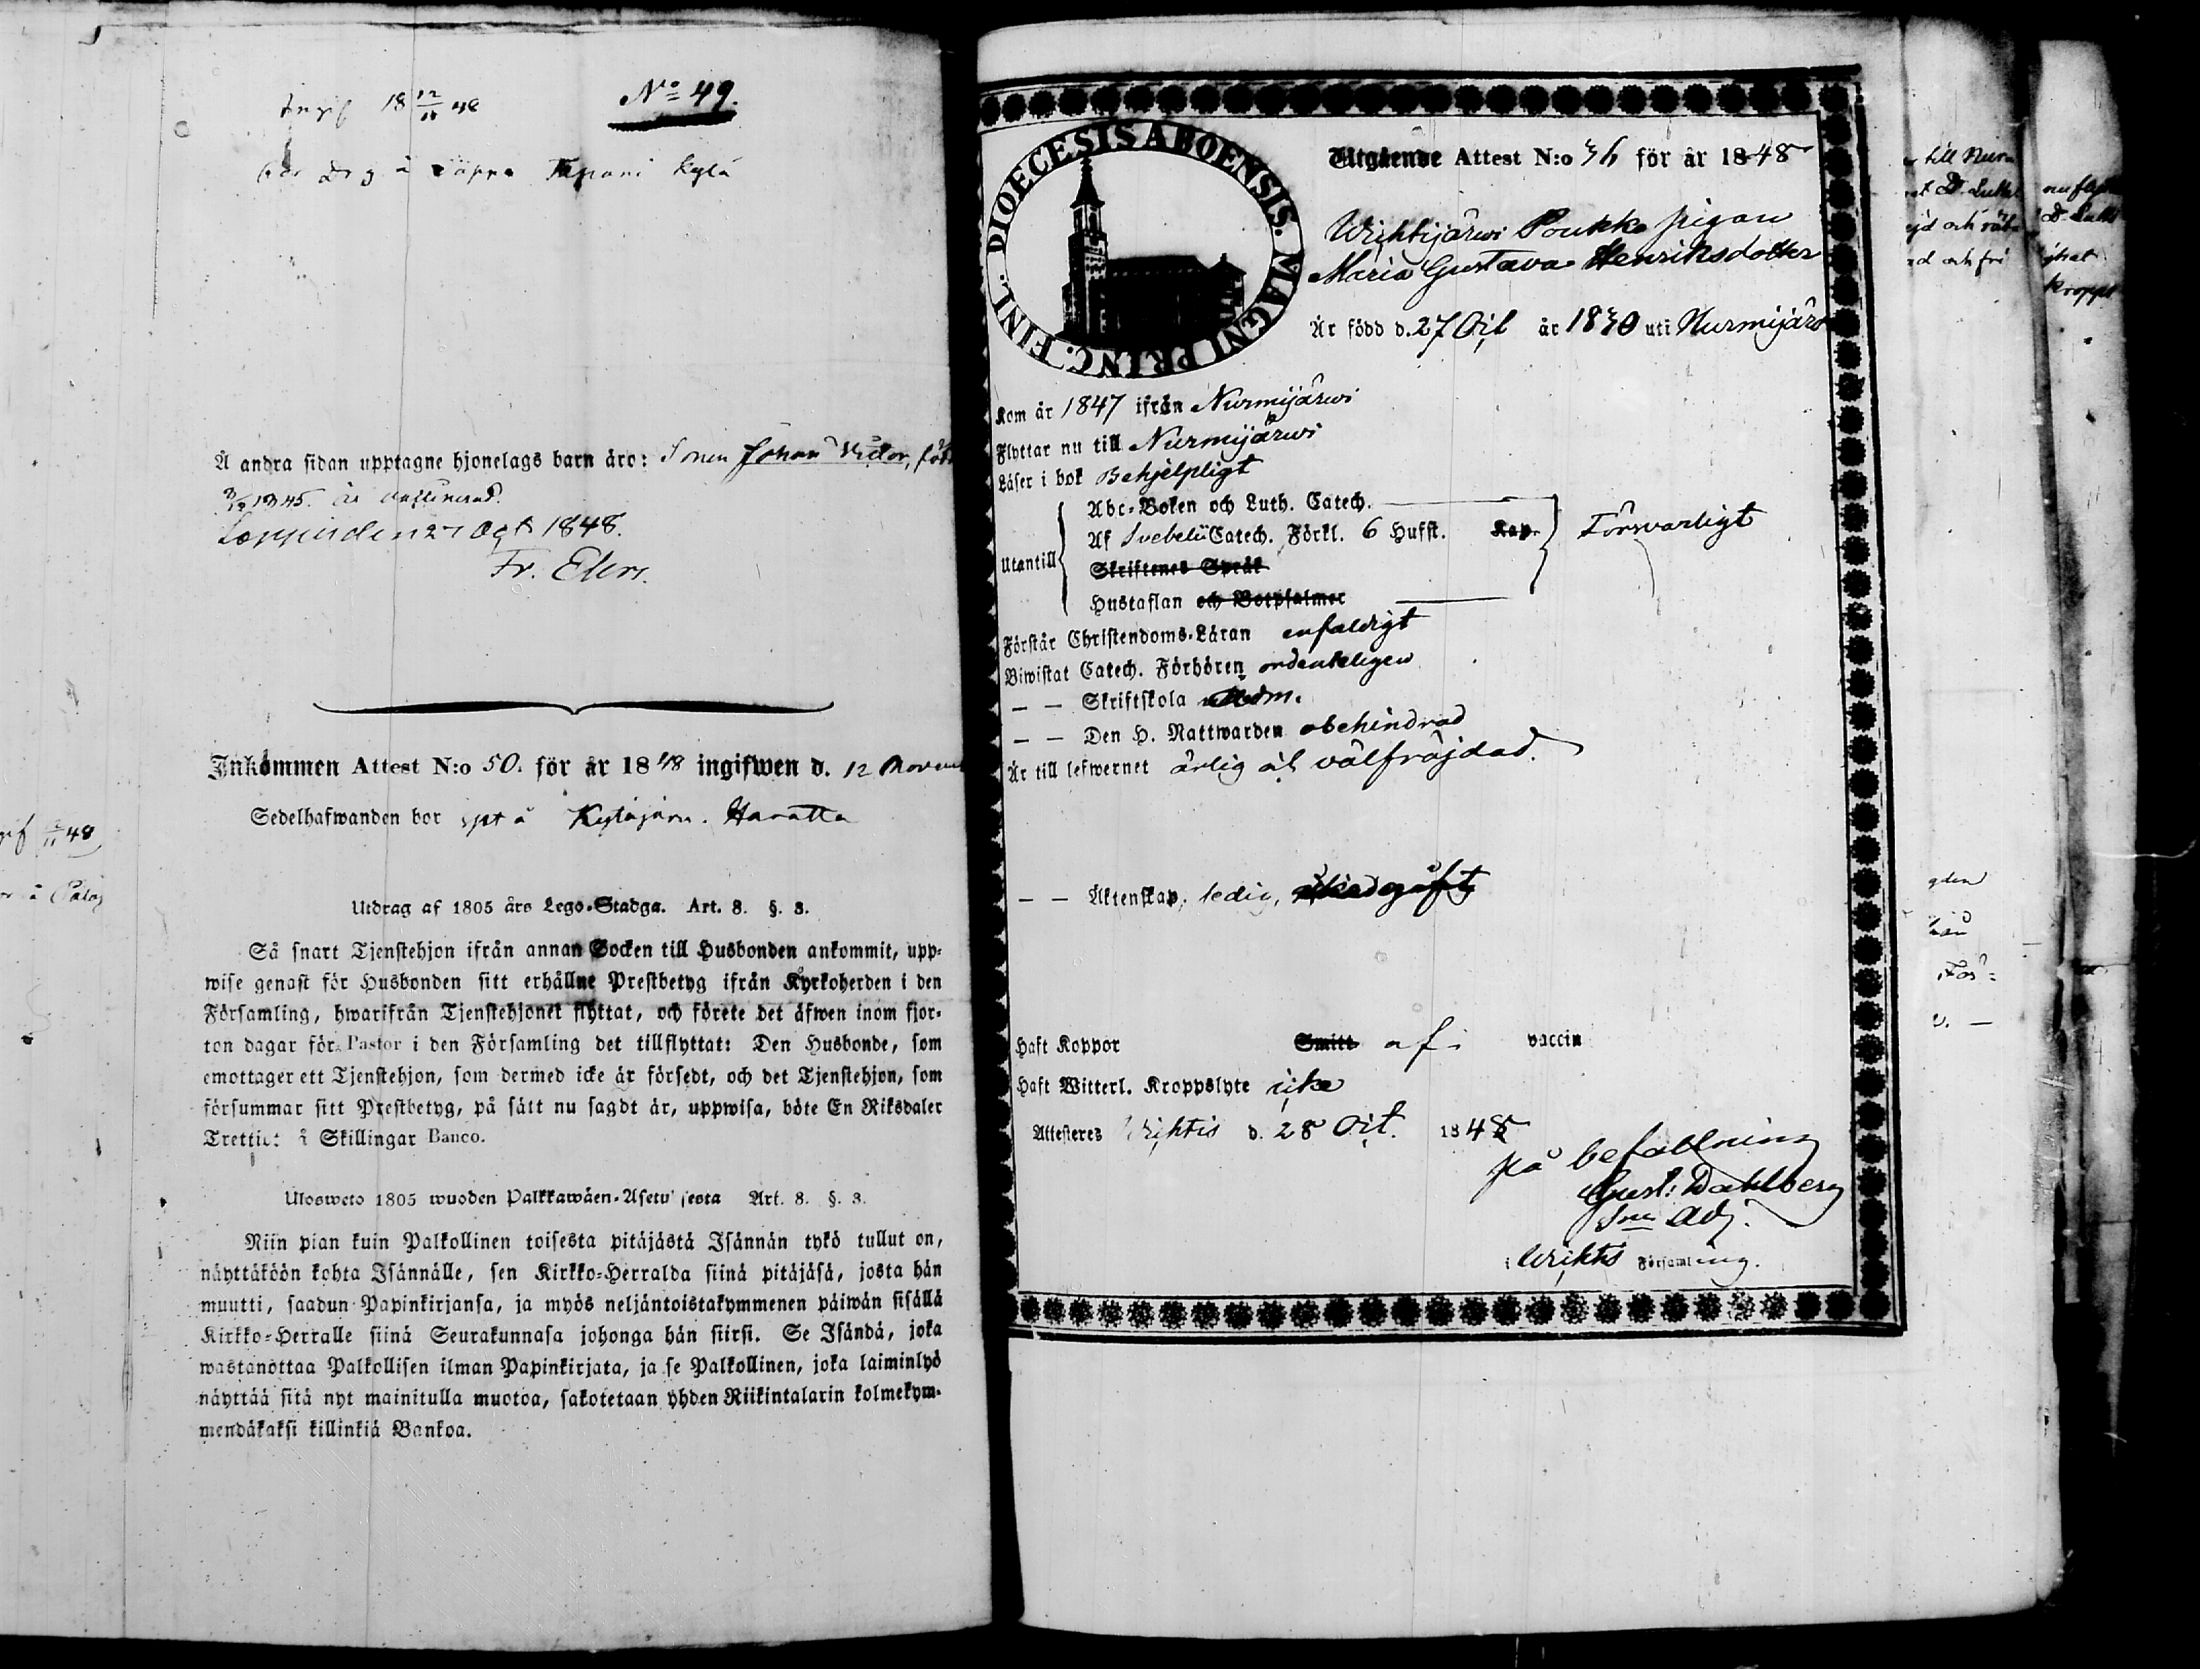 Ingif 18 12/11 48
No 49.
bor på Tapani Kylä
Å andra sidan upptagne hjonelags barn äro: Sonen Johan Victor, född
1845. är vaccinerad.
Loppis den 27 Oct 1848.
Fr. Elers.
Inkommen Attest N:o 50. för år 1848 ingifwen d. 12 Novem
Sedelhafwanden bor på Kytäjärw. Haratta
Utdrag af 1805 års Lego-Stadga. Art. 8. §. 3.
Så snart Tjenstehjon ifrån annan Socken till Husbonden ankommit, upp-
wise genast för Husbonden sitt erhållne Prestbetyg ifrån Kyrkoherden i den
Församling, hwarifrån Tjenstehjonet flyttat, och förete det äfwen inom fjor-
ton dagar för Pastor i den Församling det tillflyttat: Den Husbonde, som
emottager ett Tjenstehjon, som dermed icke är försedt, och det Tjenstehjon, som
försummar sitt Prestbetyg, på sätt nu sagdt är, uppwisa, böte En Riksdaler
Skillingar Banco.
Ulosweto 1805 wuoden Palkkawäen-Asetuksesta Art. 8. §. 3.
Niin pian kuin Palkollinen toisesta pitäjästä Isännän tykö tullut on,
näyttäköön kohta Isännälle, sen Kirkko-Herralda siinä pitäjäsä, josta hän
muutti, saadun Papinkirjansa, ja myös neljäntoistakymmenen päiwän sisällä
Kirkko-Herralle siinä Seurakunnasa johonga hän siirsi. Se Isändä, joka
wastanottaa Palkollisen ilman Papinkirjata, ja se Palkollinen, joka laiminlyö
näyttää sitä nyt mainitulla muotoa, sakotetaan yhden Riikintalarin kolmekym-
mendäkaksi killinkiä Bankoa.
DIOECESIS ABOENSIS. MAGNI PRINC. FINL.
Utgående Attest N:o 36 för år 1848
Wichtijärwi Poukka pigan
Maria Gustava Henriksdotter
Är född d. 27 Oct år 1830 uti Nurmijärw
Kom år 1847 ifrån Nurmijärwi
Flyttar nu till Nurmijärwi
Läser i bok Behjelpligt
Utantill
Abc-Boken och Luth. Catech.
Af Svebelii Catech. Förkl. 6 Hufst. Kap. Försvarligt
Skriftenes Språk
Hustaflan och Botpsalmer
Förstår Christendoms-Läran enfaldigt
Biwistat Catech. Förhören ordenteligen
— — Skriftskola
— — Den H. Nattwarden obehindrad
Är till lefwernet ärlig och välfräjdad.
— — Äktenskap, ledig,
Haft Koppor Smitt af vaccin
Haft Witterl. Kroppslyte icke
Attesteras Wichtis d. 28 Oct. 1848
på befallning
Gust: Dahlberg
Sne Adj.
i Wichtis Församling.